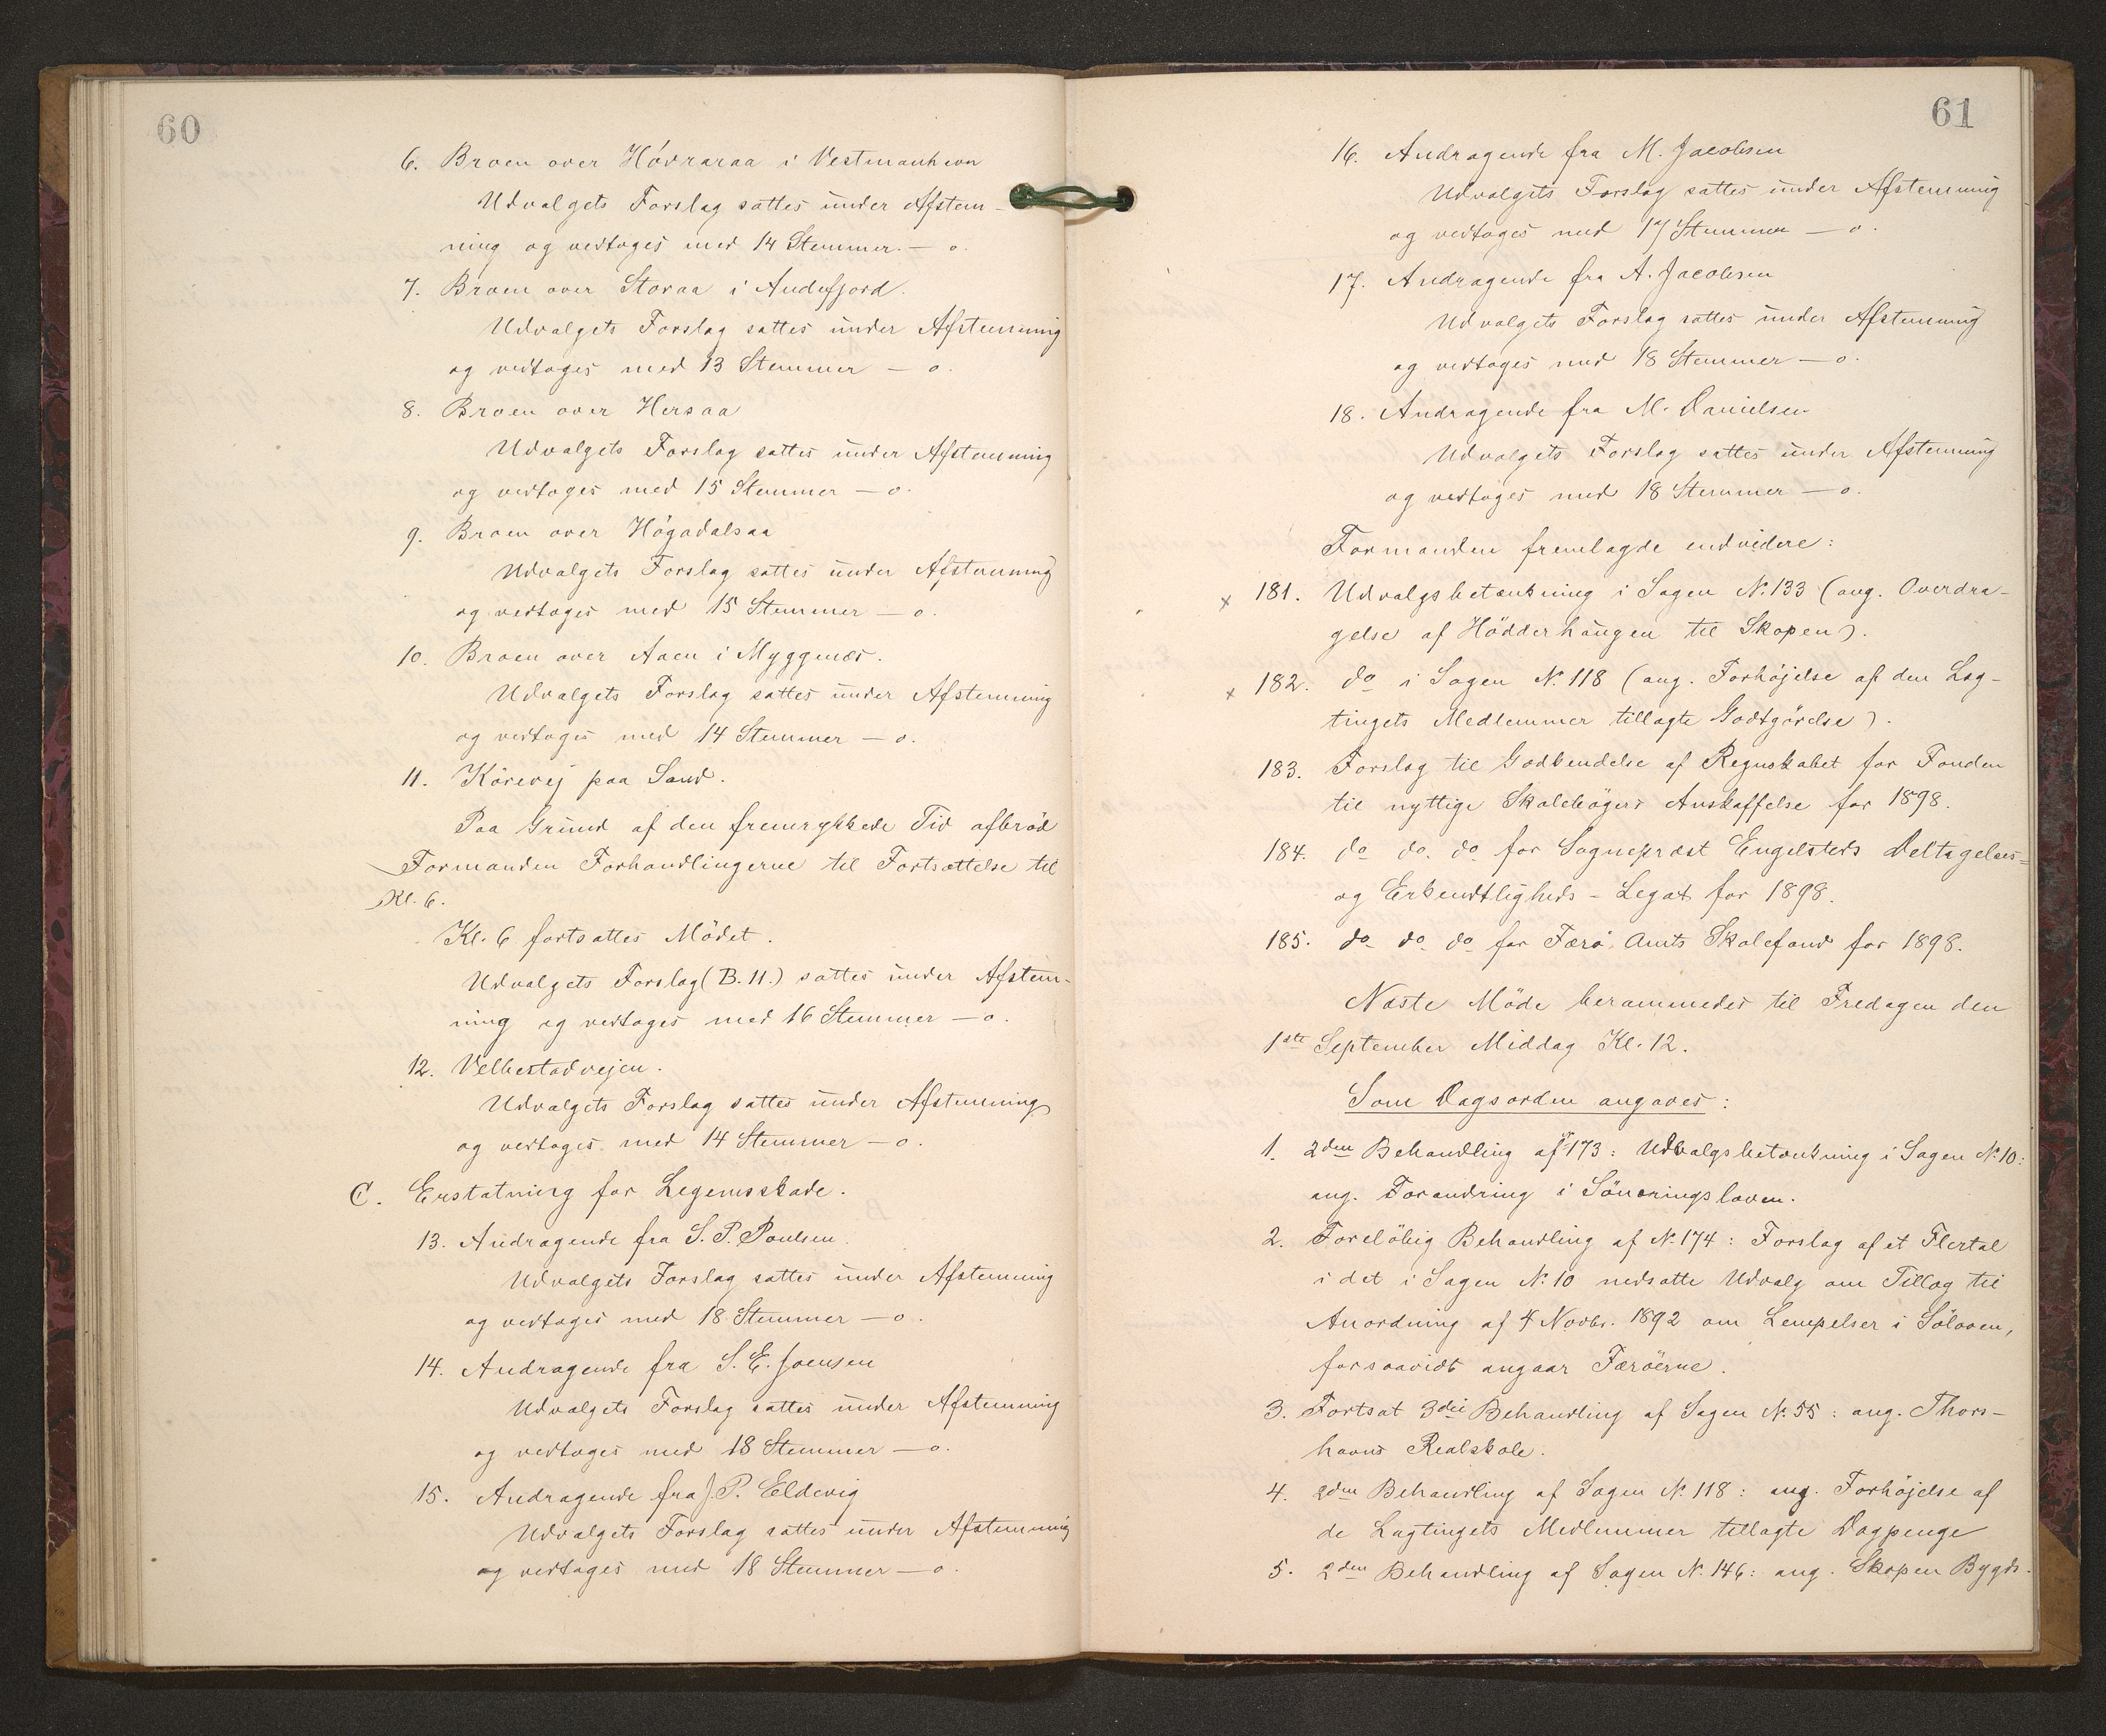 60
6. Broen over Hóvraraa i Vestmanhavn
Udvalgets Forslag sattes under Afstem-
ning og vedtoges med 14 Stemmer. — o.
7. Broen over Storaa i Andefjord.
Udvalgets Forslag sattes under Afstemning
og vedtoges med 13 Stemmer — o.
8. Broen over Hersaa
Udvalgets Forslag sattes under Afstemning
og vedtoges med 15 Stemmer — o.
9. Broen over Högadalsaa
Udvalgets Forslag sattes under Afstemning
og vedtoges med 15 Stemmer — o.
10. Broen over Aaen i Myggenæs.
Udvalgets Forslag sattes under Afstemning
og vedtoges med 14 Stemmer — o.
11. Körevej paa Sand.
Paa Grund af den fremrykkede Tid afbröd
Formanden Forhandlingerne til Fortsættelse til
Kl. 6.
Kl. 6 fortsattes Mödet.
Udvalgets Forslag (B. 11.) sattes under Afstem-
ning og vedtoges med 16 Stemmer — o.
12. Velbestadvejen.
Udvalgets Forslag sattes under Afstemning
og vedtoges med 14 Stemmer — o.
C. Erstatning for Legemsskade.
13. Andragende fra S. P. Poulsen.
Udvalgets Forslag sattes under Afstemning
og vedtoges med 18 Stemmer — o.
14. Andragende fra S. E. Joensen
Udvalgets Forslag sattes under Afstemning
og vedtoges med 18 Stemmer — o.
15. Andragende fra J. P. Eldevig
Udvalgets Forslag sattes under Afstemning
og vedtoges med 18 Stemmer — o.
61
16. Andragende fra M. Jacobsen
Udvalgets Forslag sattes under Afstemning
og vedtoges med 17 Stemmer — o.
17. Andragende fra A. Jacobsen
Udvalgets Forslag sattes under Afstemning
og vedtoges med 18 Stemmer — o.
18. Andragende fra M. Danielsen
Udvalgets Forslag sattes under Afstemning
og vedtoges med 18 Stemmer — o.
Formanden fremlagde endvidere:
x 181. Udvalgsbetænkning i Sagen No. 133 (ang. Overdra-
gelse af Hödderhaugen til Skopen).
x 182. do i Sagen No. 118 (ang. Forhöjelse af den Lag-
tingets Medlemmer tillagte Godtgörelse).
183. Forslag til Godkendelse af Regnskabet for Fonden
til nyttige Skolebögers Anskaffelse for 1898.
184. do do. do for Sognepræst Engelsteds Deltagelses-
og Erkendtligheds-Legat for 1898.
185. do do. do for Færö Amts Skolefond for 1898.
Næste Möde berammedes til Fredagen den
1ste September Middag Kl. 12.
Som Dagsorden angaves:
1. 2den Behandling af No 173: Udvalgsbetænkning i Sagen No. 10:
ang. Forandring i Sönæringsloven.
2. Forelöbig Behandling af No. 174: Forslag af et Flertal
i det i Sagen No. 10 nedsatte Udvalg om Tillæg til
Anordning af 4 Novbr. 1892 om Lempelser i Söloven,
forsaavidt angaar Færöerne.
3. Fortsat 3die Behandling af Sagen No. 55: ang. Thors-
havns Realskole.
4. 2den Behandling af Sagen No. 118: ang. Forhöjelse af
de Lagtingets Medlemmer tillagte Dagpenge
5. 2den Behandling af Sagen No. 146: ang. Skopen Bygds-